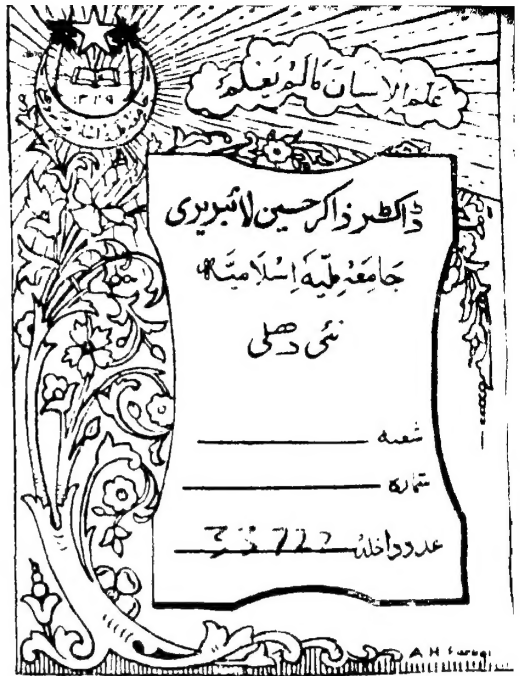 علم الانسان مالم يعلم
۱۳۳۹
ڈاکٹر ذاکر حسین لائبریری
جامعہ ملیہ اسلامیہ
نئی دھلی
شعبہ
شمارہ
عدد داخلہ
A H